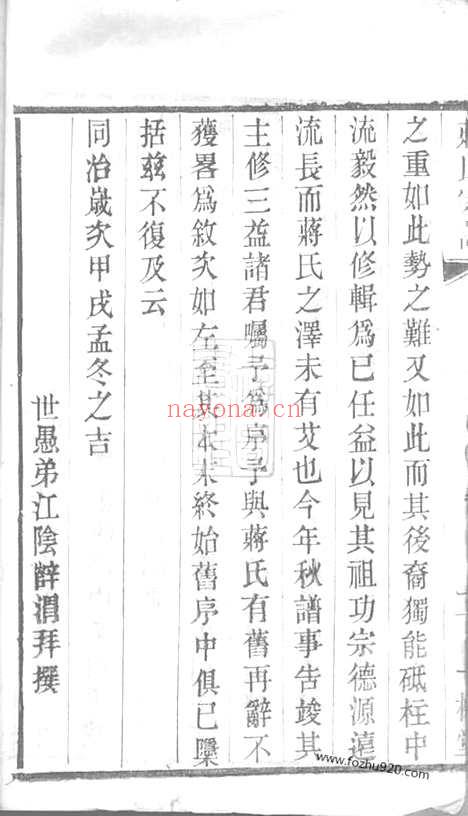 之重如此勢之難又如此而其後裔獨能砥柱中
流毅然以修輯爲己任益以見其祖功宗德源遠
流長而蔣氏之澤未有艾也今年秋譜事告竣其
主修三益諸君囑予爲序予與蔣氏有舊再辭不
獲畧爲敘次如左至其本末終始舊序中俱已檃
括兹不復及云
同治歲次甲戌孟冬之吉
世愚弟江陰薛渭拜撰
nayona.cn
www.fozhu920.com